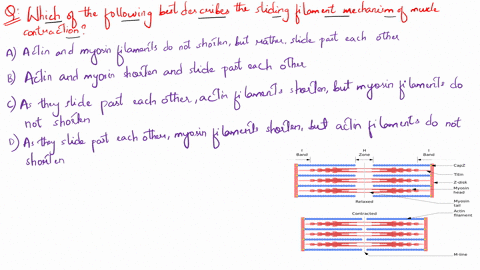 Q: Which of the following best describes the sliding filament mechanism of muscle
contraction?
A) Actin and myosin filaments do not shorten, but rather, slide past each other
B) Actin and myosin shorten and slide past each other
C) As they slide past each other, actin filaments shorten, but myosin filaments do
not shorten
D) As they slide past each other, myosin filaments shorten, but actin filaments do not
shorten
I Band
H Zone
I Band
CapZ
Titin
Z-disk
Myosin head
Myosin tail
Relaxed
Actin filament
Contracted
M-line